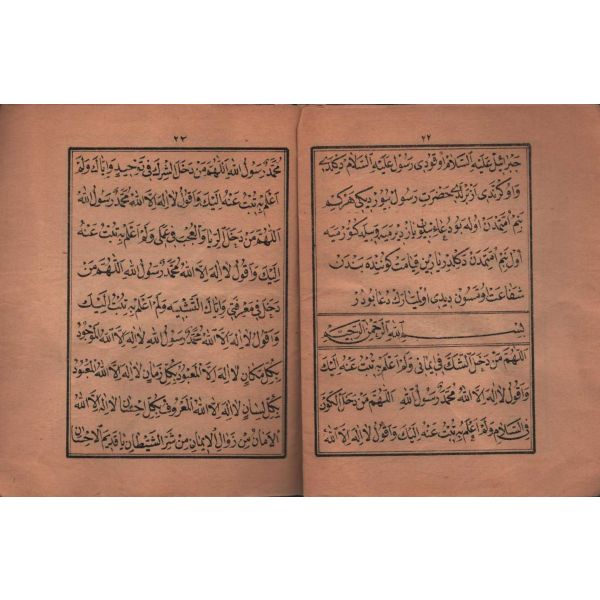 ٢٢
جبرائيل عليه السلام اوقودى رسول عليه السلام دكلدى
و اوكرندى اندن حضرت رسول بيوردى هر كيم
بنم امتمدن اوله بو دعايى يازديره و
اول بنم امتمدن دكلدر يارين قيامت كوننده بندن
شفاعت اومسون ديدى اولمبارك دعا بودر
بسم الله الرحمن الرحيم
اللهم من دخل الشك فى ايمانى ولم اعلم به تبت عنه اليك
واقول لا اله الا الله محمد رسول الله اللهم من دخل الكفر
فى السلام ولم اعلم به تبت عنه اليك واقول لا اله الا الله
٢٣
محمد رسول الله اللهم من دخل الشرك فى توحيد واياك ولم
اعلم به تبت عنه اليك واقول لا اله الا الله محمد رسول الله
اللهم من دخل الريا والعجب فى عملى ولم اعلم به تبت عنه
اليك واقول لا اله الا الله محمد رسول الله اللهم من
دخل فى معرفتى واياك التشبيه ولم اعلم به تبت اليك
واقول لا اله الا الله محمد رسول الله لا اله الا الله الموجود
بكل مكان لا اله الا الله المعبود بكل زمان لا اله الا الله المعبود
بكل لسان لا اله الا الله المعروف بكل احسان لا اله الا الله
الامان من زوال الايمان من شر الشيطان يا قديم الاحسان